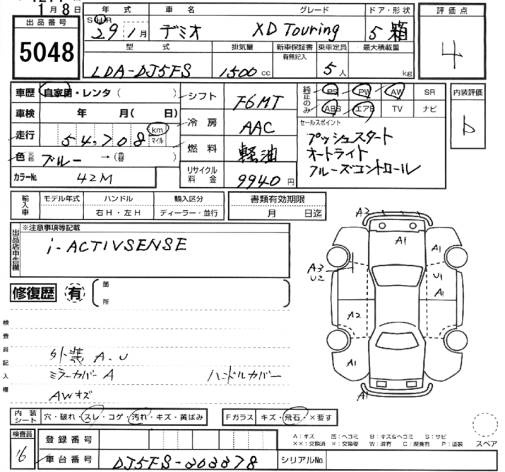 1月8日
出品番号
5048
年式 車名 グレード ドア・形状
S・H・R
29 1月 デミオ XD Touring 5 箱
型式 排気量 新車保証書 乗車定員 最大積載量
有無記入
LDA-DJ5FS 1500cc 5人 kg
評価点
4
車歴 自家用・レンタ( )
車検 年 月( 日)
走行 54,708 km マイル
色 ブルー →( )
カラーNo. 42M
シフト F6MT
冷房 AAC
燃料 軽油
リサイクル料金 9940円
純正のみ
PS PW AW SR
ABS エアB TV ナビ
セールスポイント
プッシュスタート
オートライト
クルーズコントロール
内装評価
D
輸入車
モデル年式 ハンドル 輸入区分
右H・左H ディーラー・並行
書類有効期限
月 日迄
出品店申告欄
※注意事項等記載
i-ACTIVSENSE
修復歴 有
箇所
検査員記入欄
外装 A.U
ミラーカバーA ハンドルカバー
AWキズ
A2
A1
A1
A3
U2
U1
A1
A2
A1
内装シート 穴・破れ・スレ・コゲ・汚れ・キズ・黄ばみ
Fガラス キズ・飛石・×要す
検査員
16
登録番号
車台番号 DJ5FS-202278
シリアルNo.
A:キズ U:ヘコミ B:キズ&ヘコミ S:サビ
スペア